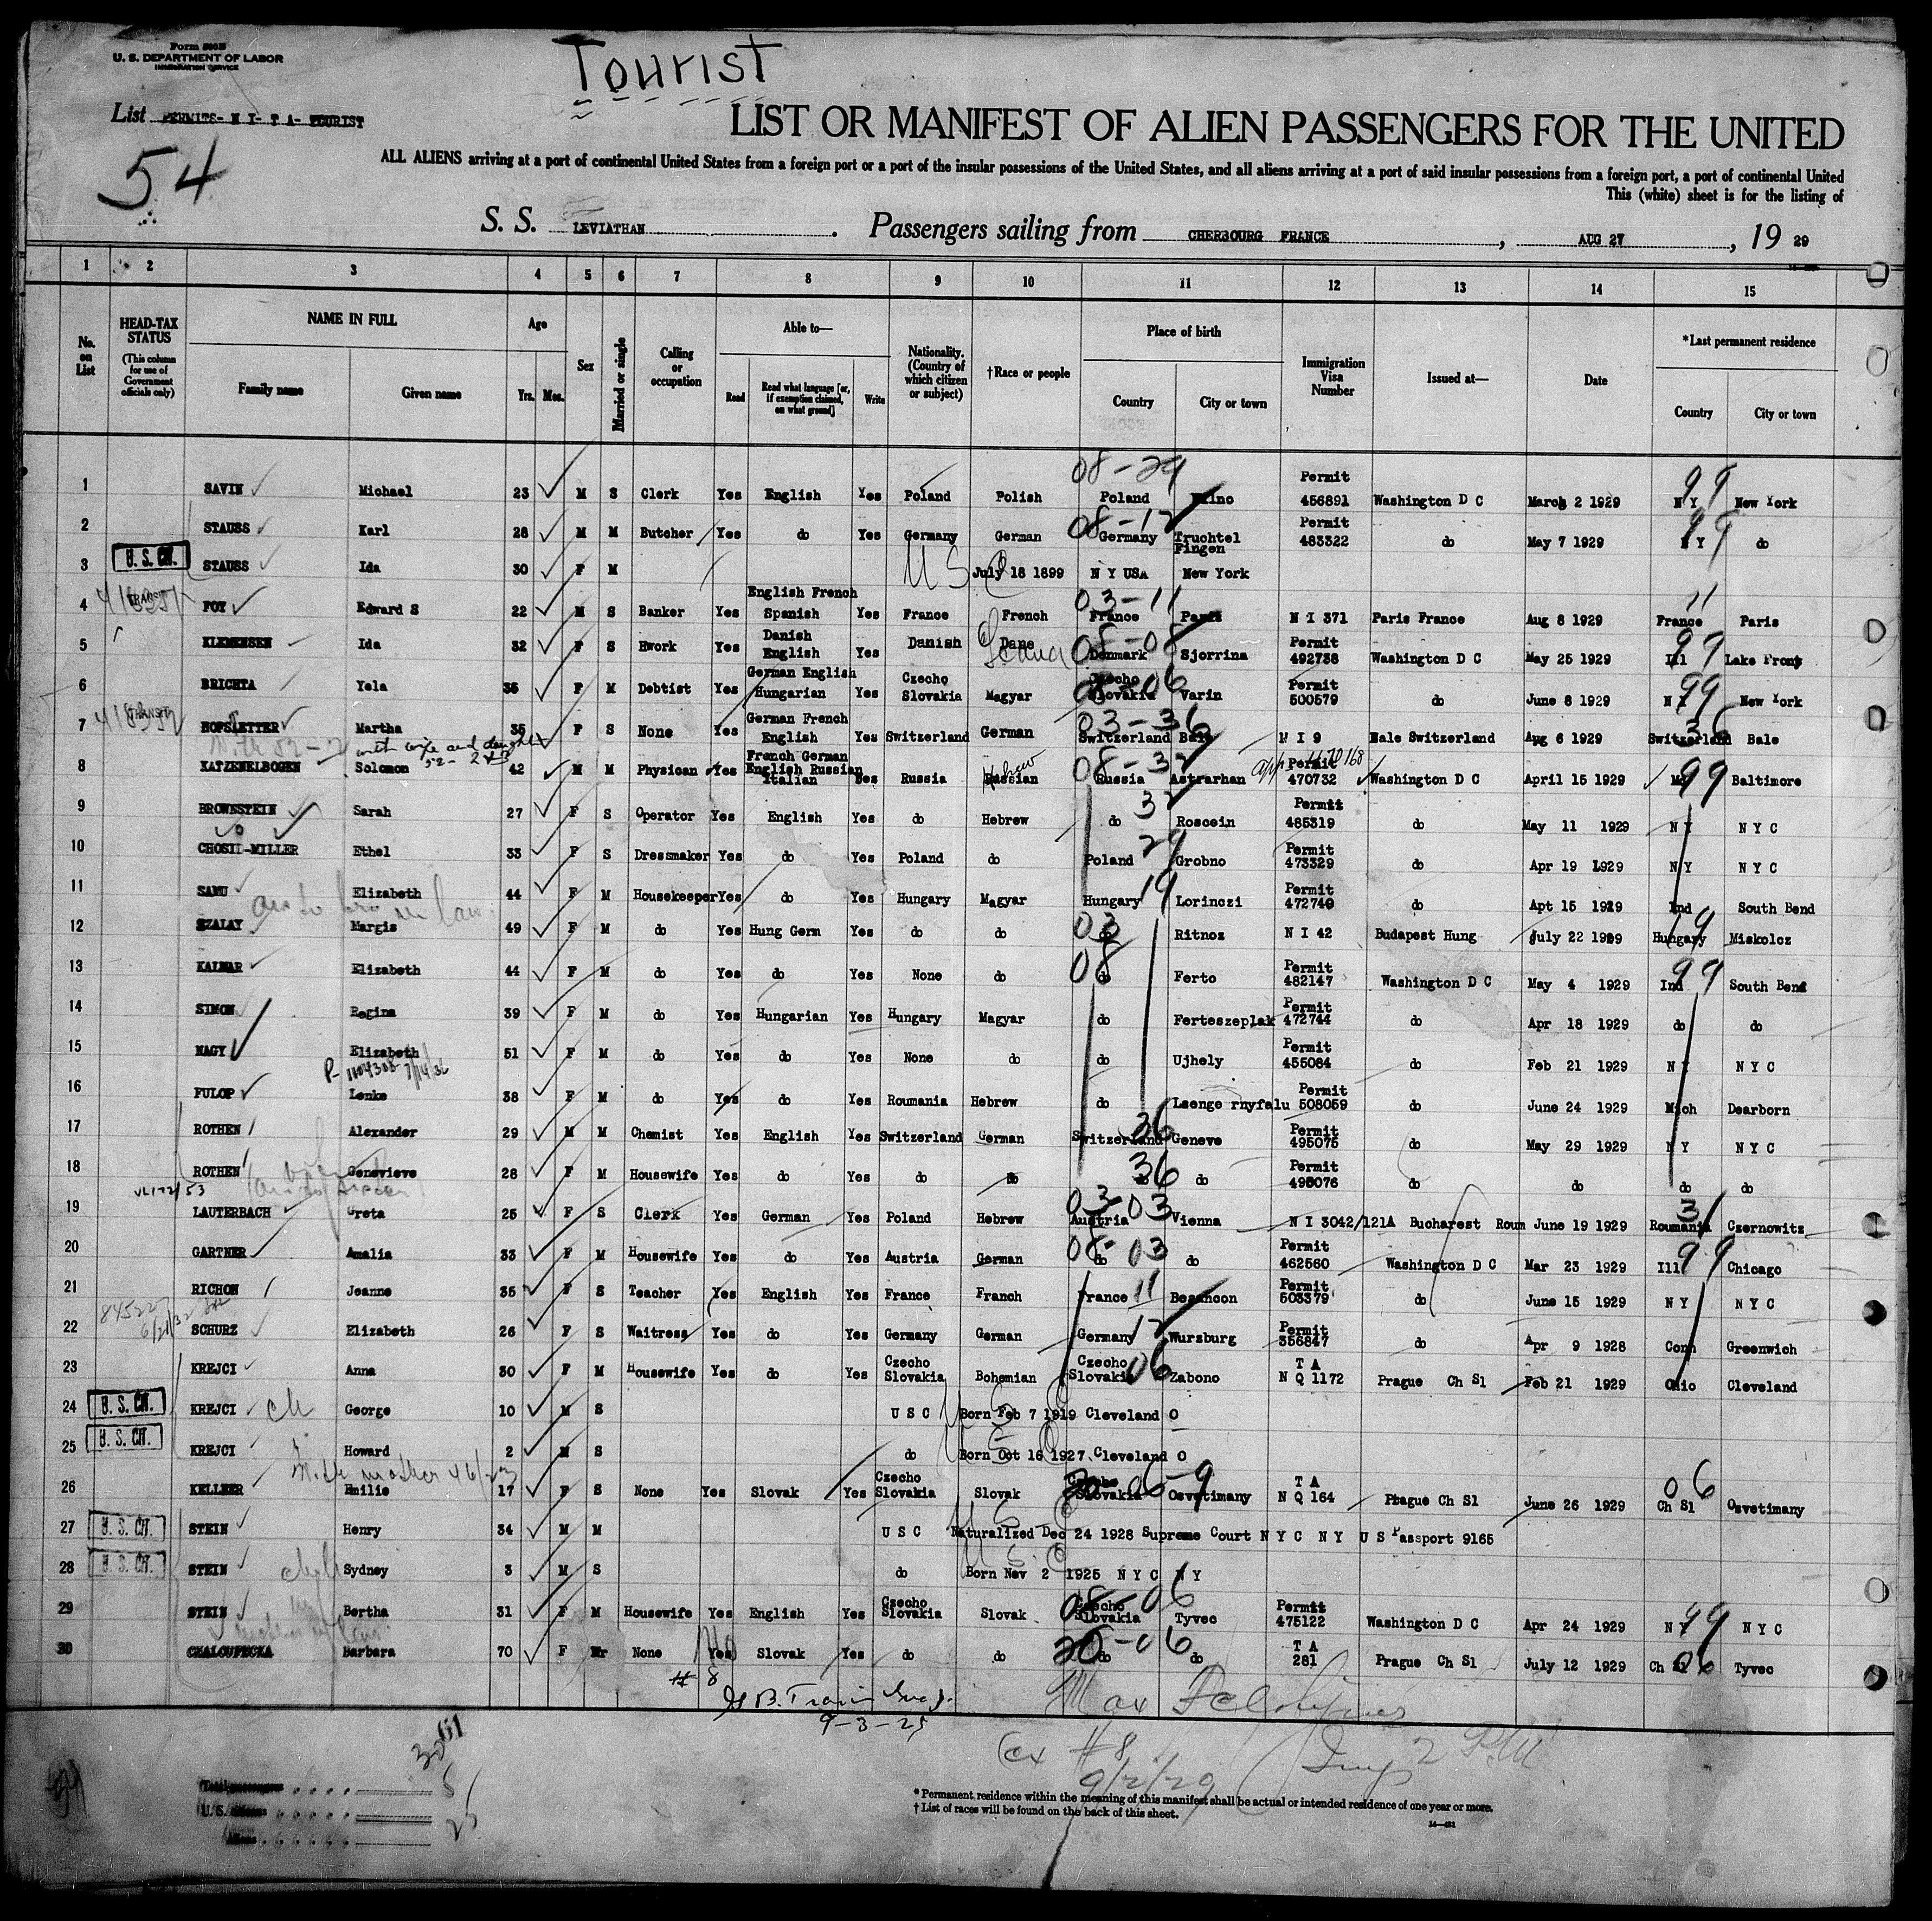 Form 500B
U. S. DEPARTMENT OF LABOR
IMMIGRATION SERVICE
Tourist
List PERMITS- N I- T A- TOURIST
54
LIST OR MANIFEST OF ALIEN PASSENGERS FOR THE UNITED
ALL ALIENS arriving at a port of continental United States from a foreign port or a port of the insular possessions of the United States, and all aliens arriving at a port of said insular possessions from a foreign port, a port of continental United
This (white) sheet is for the listing of
S. S. LEVIATHAN. Passengers sailing from CHERBOURG FRANCE, AUG 27, 19 29
1 2 3 4 5 6 7 8 9 10 11 12 13 14 15
No. on List
HEAD-TAX STATUS (This column for use of Government officials only)
NAME IN FULL
Family name Given name
Age Yrs. Mos.
Sex
Married or single
Calling or occupation
Able to—
Read Read what language [or, if exemption claimed, on what ground] Write
Nationality. (Country of which citizen or subject)
†Race or people
Place of birth
Country City or town
Immigration Visa Number
Issued at—
Date
*Last permanent residence
Country City or town
1 SAVIN Michael 23 M S Clerk Yes English Yes Poland Polish 08-29 Poland Permit 456891 Washington D C March 2 1929 99 N Y New York
2 STAUSS Karl 28 M M Butcher Yes do Yes Germany German 08-12 Germany Truchtel Fingen Permit 483322 do May 7 1929 99 N Y do
3 U. S. CH. STAUSS Ida 30 F M U S C July 18 1899 N Y USA New York
4 TRANSIT FOY Edward S 22 M S Banker Yes English French Spanish Yes France French 03-11 France Paris N I 371 Paris France Aug 8 1929 11 France Paris
5 KLEMENSEN Ida 32 F S Hwork Yes Danish English Yes Danish Dane 08-08 Denmark Sjorrina Permit 492738 Washington D C May 25 1929 99 Ill Lake Front
6 BRICHTA Yela 35 F M Debtist Yes German English Hungarian Yes Czecho Slovakia Magyar 08-06 Czecho Slovakia Varin Permit 500579 do June 8 1929 99 N Y New York
7 TRANSIT HOFSLETTER Martha 35 F S None Yes German French English Yes Switzerland German 03-36 Switzerland Bale N I 9 Bale Switzerland Aug 6 1929 36 Switzerland Bale
with wife and daught
8 KATZENELBOGEN Solomon 42 M M Physican Yes French German English Russian Italian Yes Russia Russian Hebrew 08-32 Russia Astrarhan Permit 470732 Washington D C April 15 1929 99 Baltimore
9 BROWNSTEIN Sarah 27 F S Operator Yes English Yes do Hebrew 32 do Roscein Permit 485319 do May 11 1929 N Y N Y C
10 CHOSID-MILLER Ethel 33 F S Dressmaker Yes do Yes Poland do 29 Poland Grobno Permit 473329 do Apr 19 1929 N Y N Y C
11 SAMU Elizabeth 44 F M Housekeeper Yes do Yes Hungary Magyar 19 Hungary Lorinczi Permit 472740 do Apt 15 1929 Ind South Bend
12 SZALAY Margis 49 F M do Yes Hung Germ Yes do do 03 do Ritnoz N I 42 Budapest Hung July 22 1929 19 Hungary Miskolcz
13 KALMAR Elizabeth 44 F M do Yes do Yes None do 08 do Ferto Permit 482147 Washington D C May 4 1929 99 Ind South Bend
14 SIMON Regina 39 F M do Yes Hungarian Yes Hungary Magyar do Ferteszeplak Permit 472744 do Apr 18 1929 do do
15 NAGY Elizabeth 51 F M do Yes do Yes None do do Ujhely Permit 455084 do Feb 21 1929 N Y N Y C
16 FULOP Lenke 38 F M do Yes do Yes Roumania Hebrew do Lsenge rnyfalu Permit 508059 do June 24 1929 Mich Dearborn
17 ROTHEN Alexander 29 M M Chemist Yes English Yes Switzerland German 36 Switzerland Geneve Permit 495075 do May 29 1929 N Y N Y C
18 ROTHEN Genevieve 28 F M Housewife Yes do Yes do do 36 do do Permit 495076 do do do do
19 LAUTERBACH Greta 25 F S Clerk Yes German Yes Poland Hebrew 03-03 Austria Vienna N I 3042/121A Bucharest Roum June 19 1929 31 Roumania Czernowitz
20 GARTNER Amalia 33 F M Housewife Yes do Yes Austria German 08-03 do do Permit 462560 Washington D C Mar 23 1929 99 Ill Chicago
21 RICHON Jeanne 35 F S Teacher Yes English Yes France Franch 11 France Besancon Permit 503379 do June 15 1929 N Y N Y C
22 SCHURZ Elizabeth 26 F S Waitress Yes do Yes Germany German 12 Germany Wursburg Permit 356847 do Apr 9 1928 Conn Greenwich
23 KREJCI Anna 30 F M Housewife Yes do Yes Czecho Slovakia Bohemian 06 Czecho Slovakia Zabono T A N Q 1172 Prague Ch Sl Feb 21 1929 Ohio Cleveland
24 U. S. CH. KREJCI ch George 10 M S U S C Born Feb 7 1919 Cleveland O
25 U. S. CH. KREJCI Howard 2 M S do Born Oct 16 1927 Cleveland O
26 KELLNER Emilie 17 F S None Yes Slovak Yes Czecho Slovakia Slovak Czecho Slovakia Osvetimany T A N Q 164 Prague Ch Sl June 26 1929 06 Ch Sl Osvetimany
27 U. S. CH. STEIN Henry 34 M M U S C Naturalized Dec 24 1928 Supreme Court N Y C N Y U S Passport 9165
28 U. S. CH. STEIN Sydney 3 M S do Born Nov 2 1925 N Y C N Y
29 STEIN Bertha 31 F M Housewife Yes English Yes Czecho Slovakia Slovak 08-06 Czecho Slovakia Tyvec Permit 475122 Washington D C Apr 24 1929 99 N Y N Y C
30 CHALOUPECKA Barbara 70 F Wr None Yes Slovak Yes do do 20-06 do do T A 281 Prague Ch Sl July 12 1929 06 Ch Sl Tyvec
# 8
9-3-25
Max
Ex #8
9/2/29
Total passengers
U. S. citizens
Aliens
30
5
25
* Permanent residence within the meaning of this manifest shall be actual or intended residence of one year or more.
† List of races will be found on the back of this sheet.